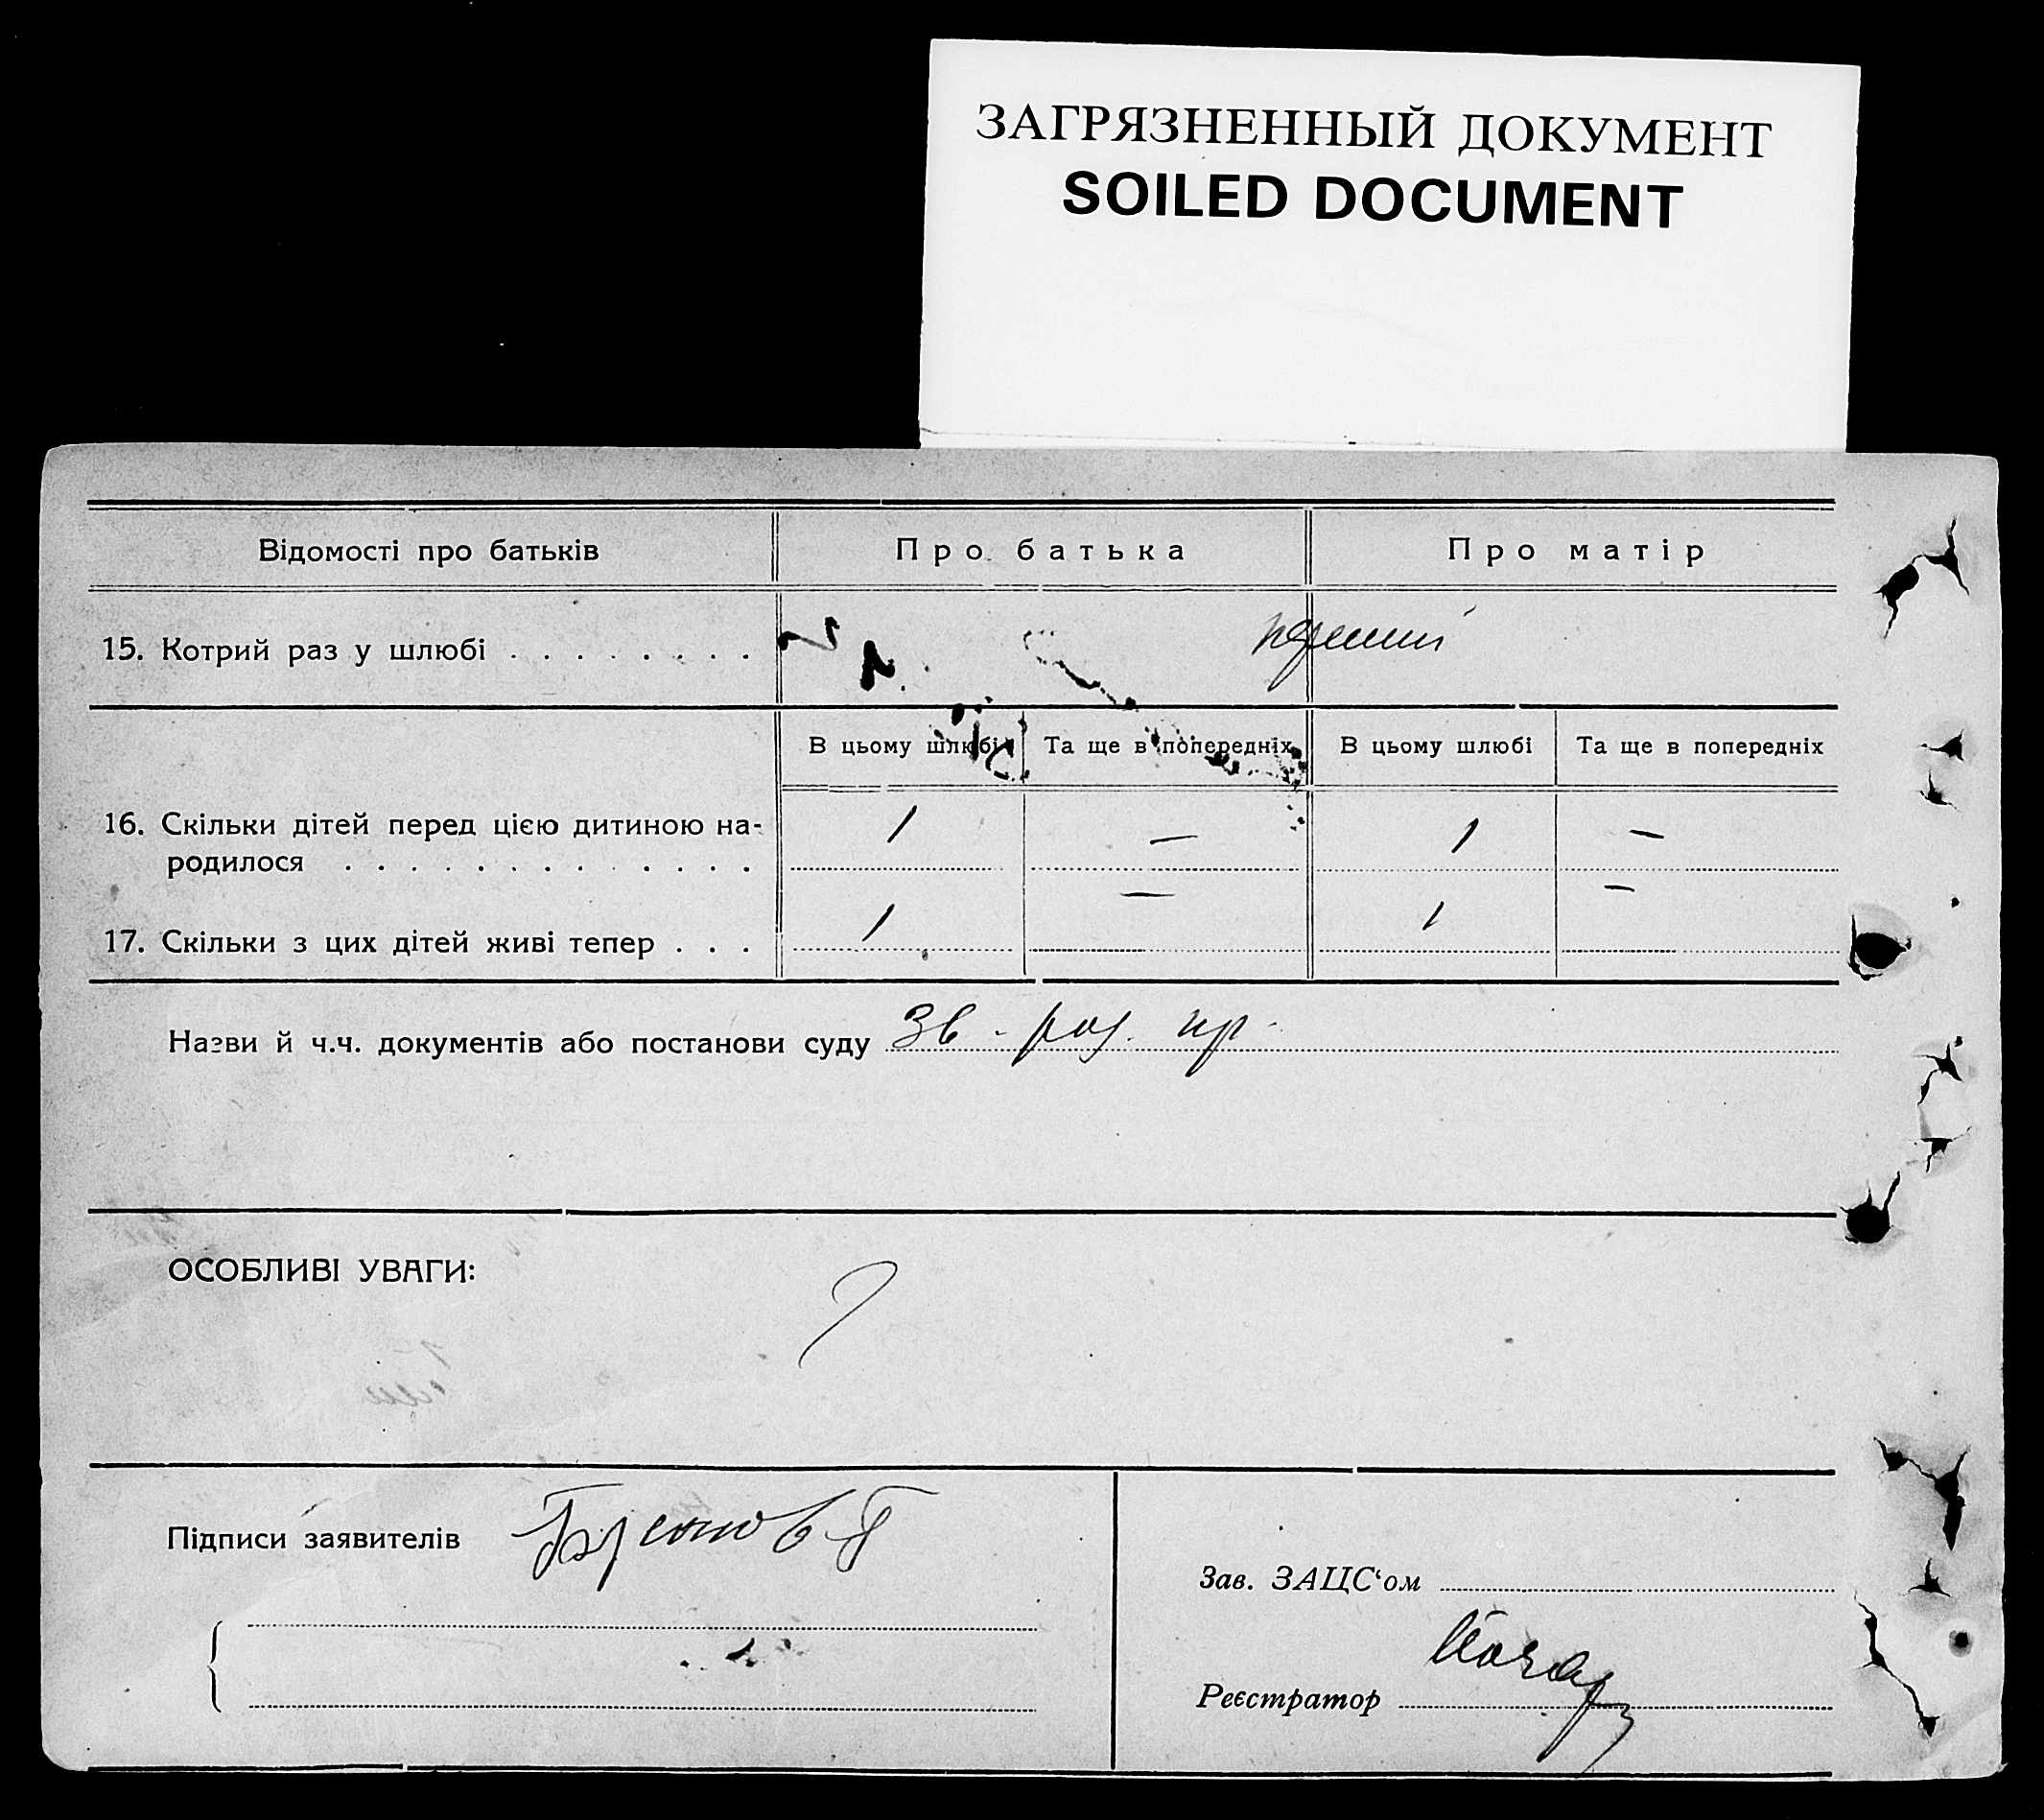 ЗАГРЯЗНЕННЫЙ ДОКУМЕНТ
SOILED DOCUMENT
Відомості про батьків Про батька Про матір
15. Котрий раз у шлюбі . . . . . . . .
В цьому шлюбі Та ще в попередніх В цьому шлюбі Та ще в попередніх
16. Скільки дітей перед цією дитиною на- 1 — 1 —
родилося . . . . . . . . . . . . .
17. Скільки з цих дітей живі тепер . . . 1 — 1 —
Назви й ч.ч. документів або постанови суду Зв. роз. пр.
ОСОБЛИВІ УВАГИ:
Підписи заявителів
Зав. ЗАЦС‘ом
Реєстратор